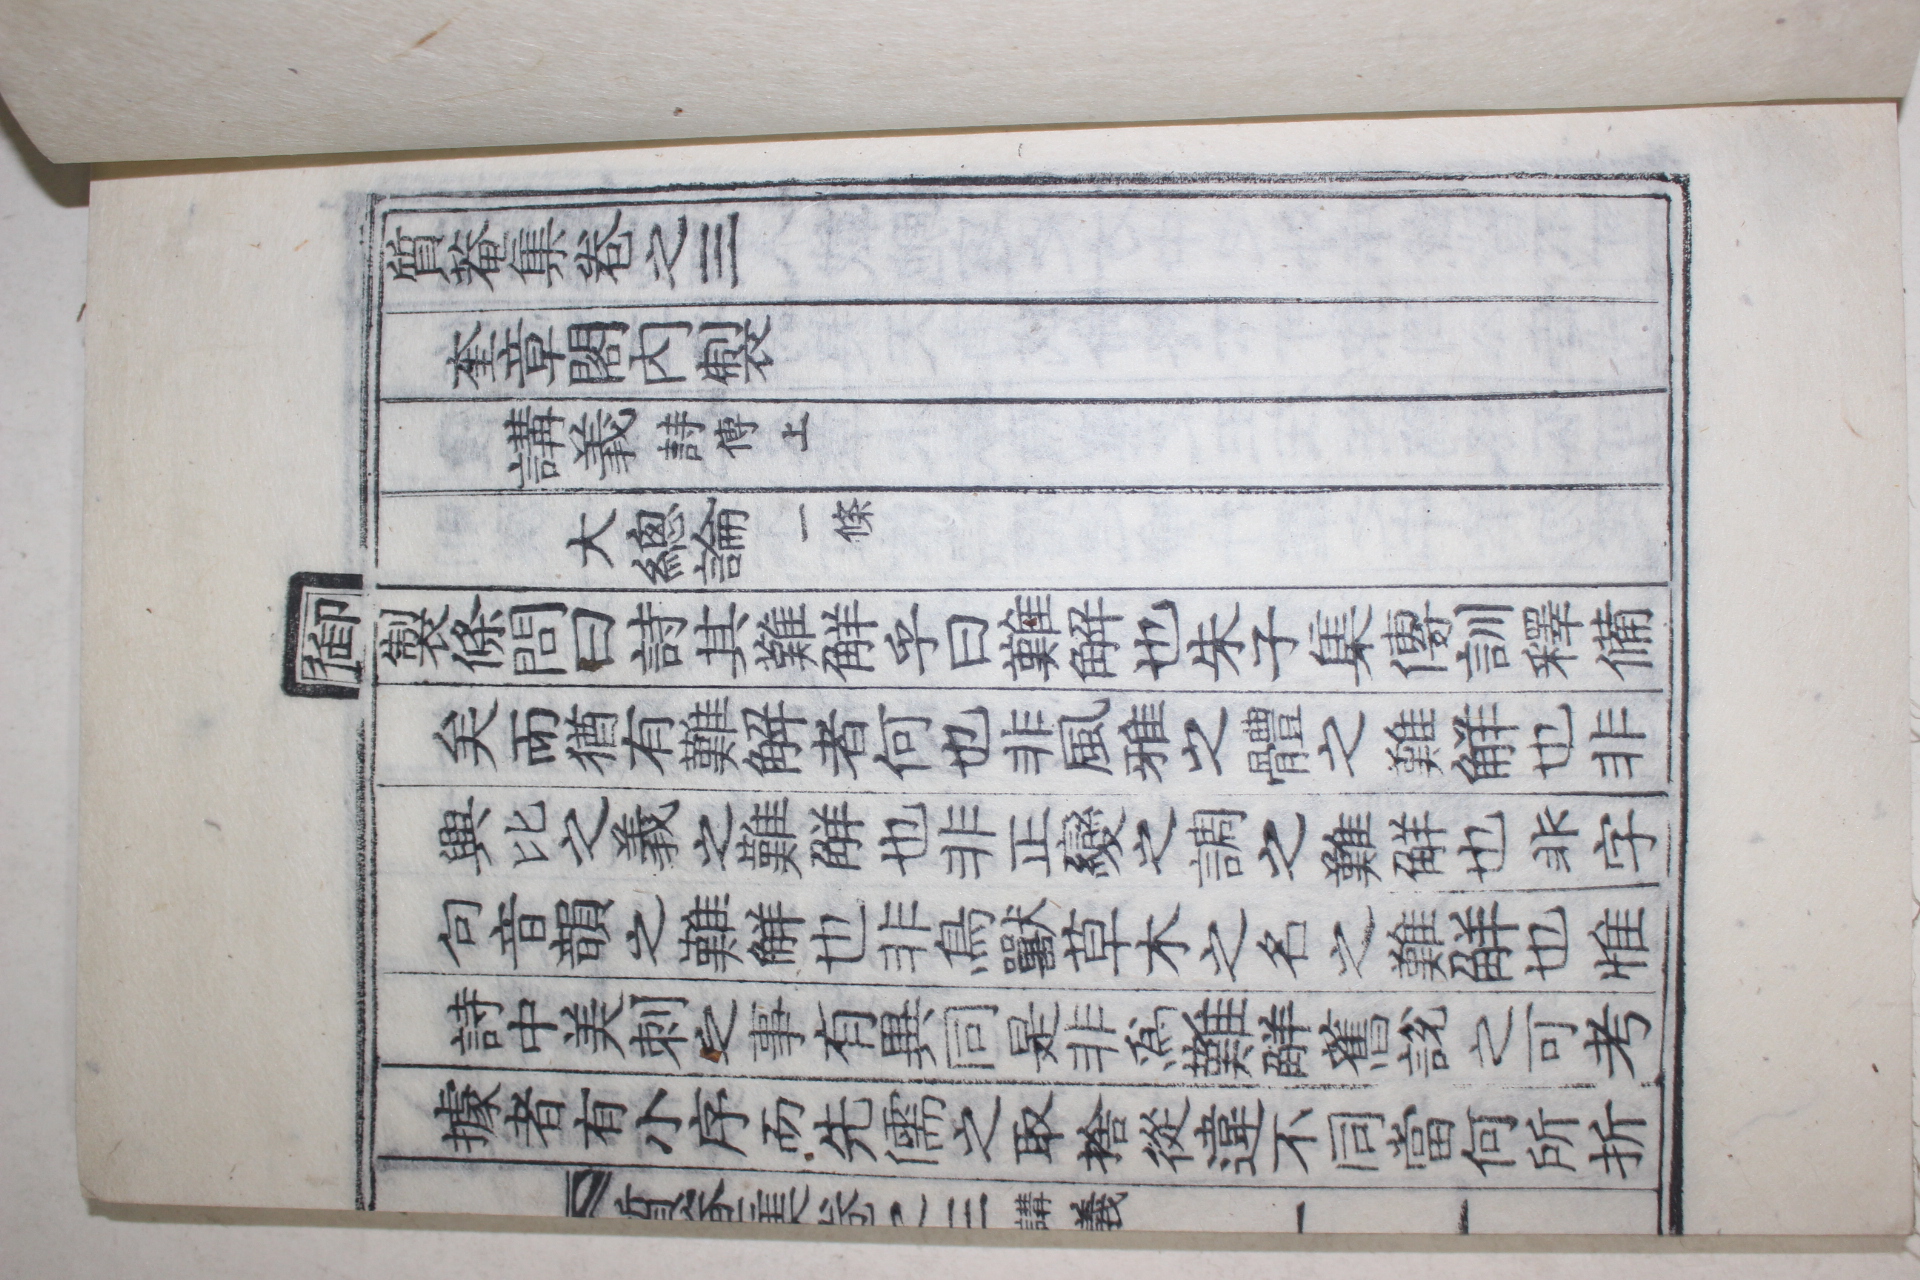 質菴集卷之三
奎章閣內製
講義詩傳上
大總論一條
御製條問曰詩其難解乎曰難解也朱子集傳訓釋備
矣而猶有難解者何也非風雅之體之難解也非
興比之義之難解也非正變之調之難解也非字
句音韻之難解也非鳥獸草木之名之難解也惟
詩中美刺之事有異同是非爲難解舊說之可考
據者有小序而先儒之取捨從違不同當何所折
質菴集卷之三 講義 一